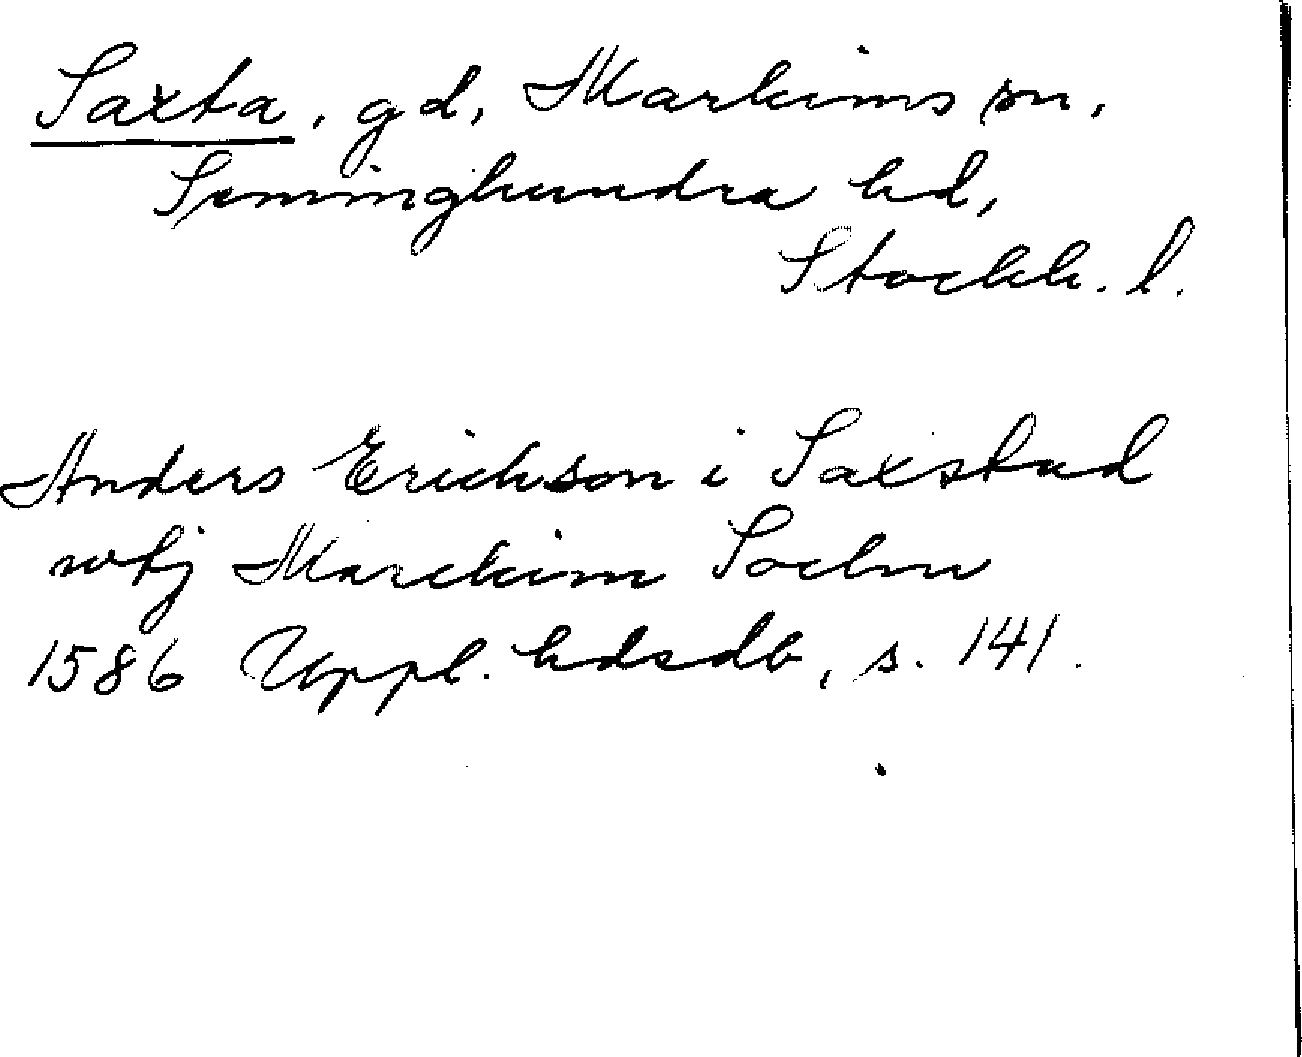 Saxta, gd, Markims sn,
Seminghundra hd,
Stockh. l.
Anders Erichson i Saxstad
wtj Marckim Sochn
1586 Uppl. hdsdb, s. 141.